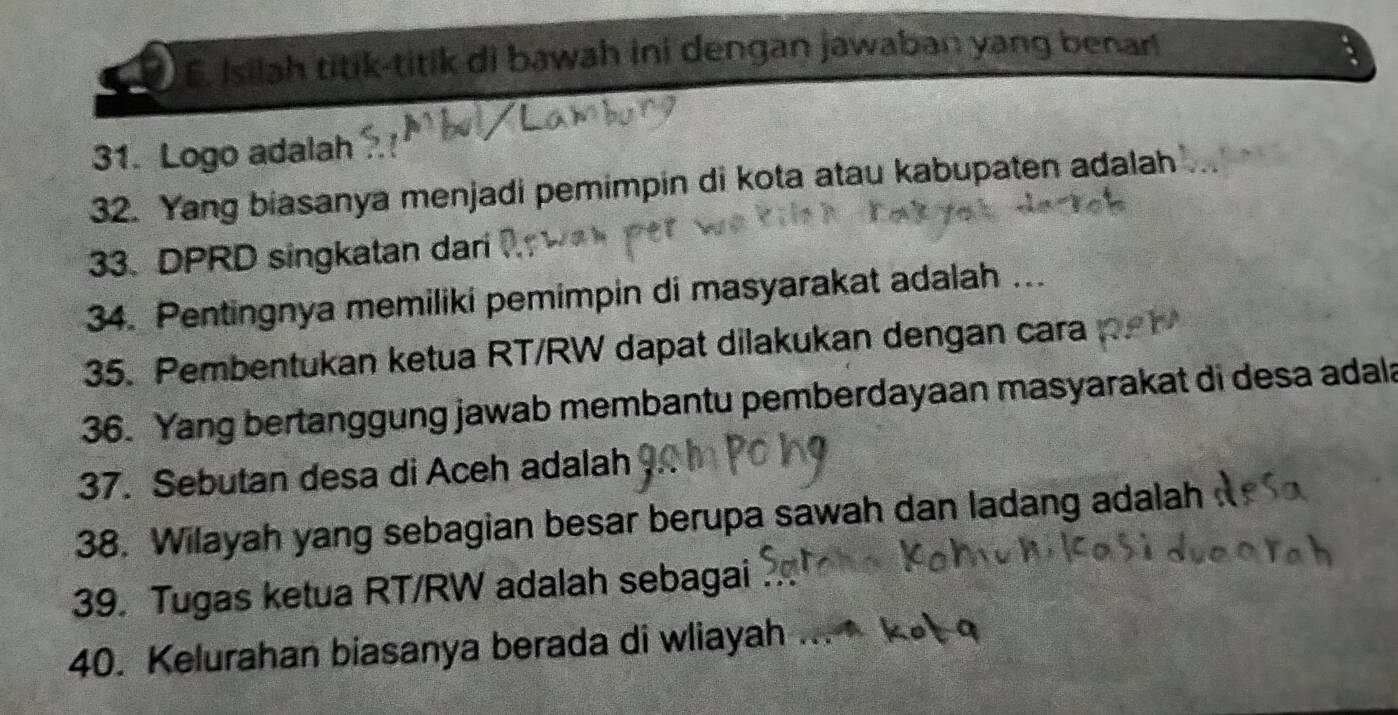 E. Isilah titik-titik di bawah ini dengan jawaban yang benar!
31. Logo adalah ... Simbol/Lambung
32. Yang biasanya menjadi pemimpin di kota atau kabupaten adalah ...
33. DPRD singkatan dari ... Dewan per wakilan rakyat daerah
34. Pentingnya memiliki pemimpin di masyarakat adalah ...
35. Pembentukan ketua RT/RW dapat dilakukan dengan cara ... pem
36. Yang bertanggung jawab membantu pemberdayaan masyarakat di desa adala
37. Sebutan desa di Aceh adalah ... gampong
38. Wilayah yang sebagian besar berupa sawah dan ladang adalah ... desa
39. Tugas ketua RT/RW adalah sebagai ... Sarana Komunikasi duaarah
40. Kelurahan biasanya berada di wliayah ... kota